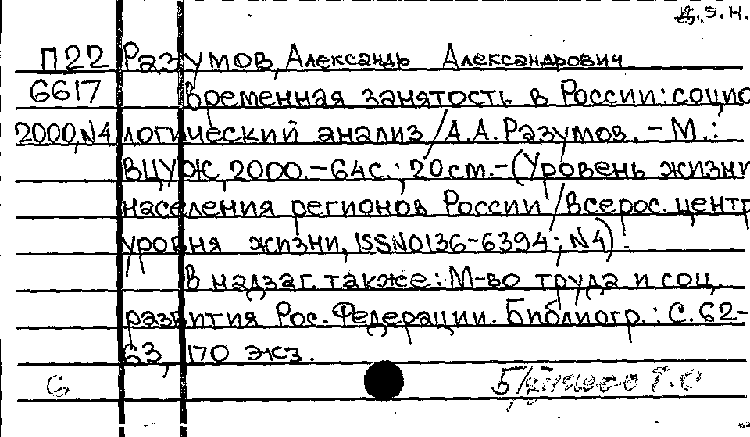 П22 Разумов, Александр Александрович
6617 Временная занятость в России: социо
2000,N4 логический анализ / А.А. Разумов. - М.:
ВЦУЖ, 2000. - 64с.; 20см. - (Уровень жизни
населения регионов России / Всерос. центр
уровня жизни, ISSN0136-6394; N4).
В надзаг. также: М-во труда и соц.
развития Рос. Федерации. Библиогр.: С. 62-
63, 170 экз.
G Б/